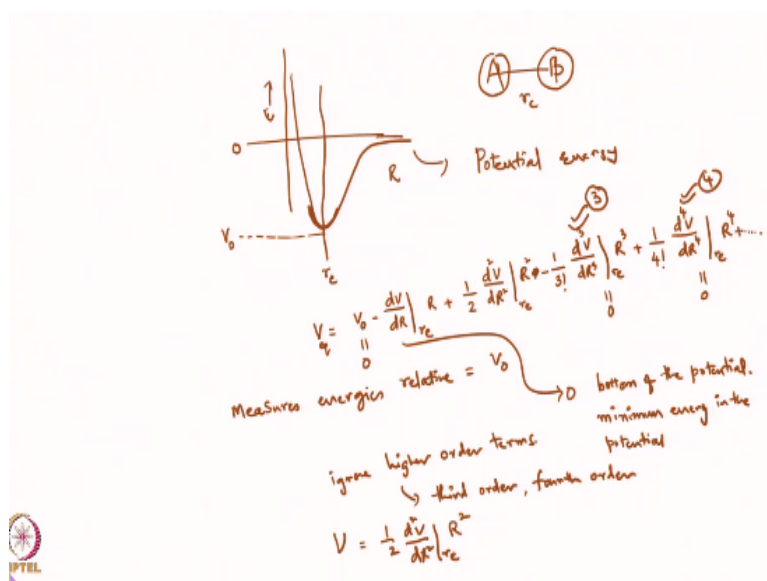 A B
r_e
↑ E
0
R → Potential energy
V_0
r_e
③ ④
V_q = V_0 - dV/dR|_{r_e} R + 1/2 d²V/dR²|_{r_e} R² - 1/3! d³V/dR³|_{r_e} R³ + 1/4! d⁴V/dR⁴|_{r_e} R⁴ + ....
|| || ||
0 0 0
Measures energies relative = V_0
→ 0 bottom of the potential.
minimum energy in the
potential
ignore higher order terms.
↳ third order, fourth order
V = 1/2 d²V/dR²|_{r_e} R²